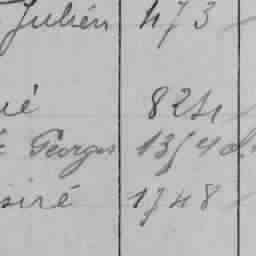 Julién 473
ué 824
Georges 1354
siré 1748